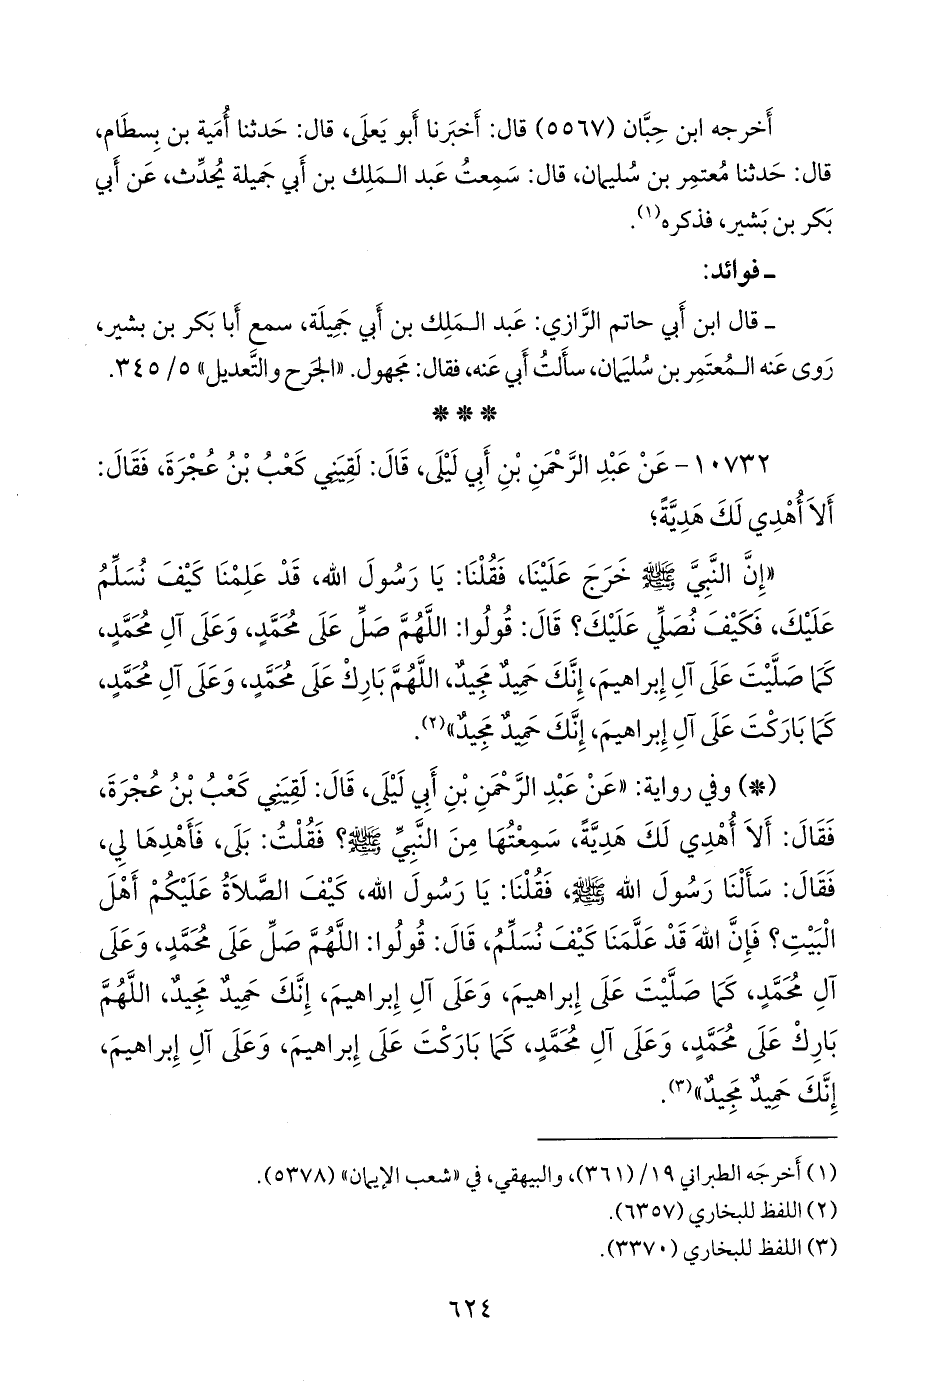 أَخرجه ابن حِبَّان (٥٥٦٧) قال: أَخبَرنا أبو يَعلَى، قال: حَدثنا أُمَية بن بِسطَام،
قال: حَدثنا مُعتمِر بن سُليمان، قال: سَمِعتُ عَبد الـمَلِك بن أَبي جَمِيلة يُحَدِّث، عَن أَبي
بَكر بن بَشير، فذكره(١).
ـ فوائد:
ـ قال ابن أَبي حاتم الرَّازي: عَبد الـمَلِك بن أَبي جَمِيلَة، سمع أَبا بَكر بن بشير،
رَوى عَنه الـمُعتَمِر بن سُليَمان، سأَلتُ أَبي عَنه، فقال: مجهول. «الجَرح والتَّعديل» ٥/ ٣٤٥.
* * *
١٠٧٣٢- عَنْ عَبْدِ الرَّحْمَنِ بْنِ أَبِي لَيْلَى، قَالَ: لَقِيَنِي كَعْبُ بْنُ عُجْرَةَ، فَقَالَ:
أَلاَ أُهْدِي لَكَ هَدِيَّةً؛
«إِنَّ النَّبِيَّ ﷺ خَرَجَ عَلَيْنَا، فَقُلْنَا: يَا رَسُولَ الله، قَدْ عَلِمْنَا كَيْفَ نُسَلِّمُ
عَلَيْكَ، فَكَيْفَ نُصَلِّي عَلَيْكَ؟ قَالَ: قُولُوا: اللَّهُمَّ صَلِّ عَلَى مُحَمَّدٍ، وَعَلَى آلِ مُحَمَّدٍ،
كَمَا صَلَّيْتَ عَلَى آلِ إِبراهيمَ، إِنَّكَ حَمِيدٌ مَجِيدٌ، اللَّهُمَّ بَارِكْ عَلَى مُحَمَّدٍ، وَعَلَى آلِ مُحَمَّدٍ،
كَمَا بَارَكْتَ عَلَى آلِ إِبراهيمَ، إِنَّكَ حَمِيدٌ مَجِيدٌ»(٢).
(*) وفي رواية: «عَنْ عَبْدِ الرَّحْمَنِ بْنِ أَبِي لَيْلَى، قَالَ: لَقِيَنِي كَعْبُ بْنُ عُجْرَةَ،
فَقَالَ: أَلاَ أُهْدِي لَكَ هَدِيَّةً، سَمِعْتُهَا مِنَ النَّبِيِّ ﷺ؟ فَقُلْتُ: بَلَى، فَأَهْدِهَا لِي،
فَقَالَ: سَأَلْنَا رَسُولَ الله ﷺ، فَقُلْنَا: يَا رَسُولَ الله، كَيْفَ الصَّلاَةُ عَلَيْكُمْ أَهْلَ
الْبَيْتِ؟ فَإِنَّ اللهَ قَدْ عَلَّمَنَا كَيْفَ نُسَلِّمُ، قَالَ: قُولُوا: اللَّهُمَّ صَلِّ عَلَى مُحَمَّدٍ، وَعَلَى
آلِ مُحَمَّدٍ، كَمَا صَلَّيْتَ عَلَى إِبراهيمَ، وَعَلَى آلِ إِبراهيمَ، إِنَّكَ حَمِيدٌ مَجِيدٌ، اللَّهُمَّ
بَارِكْ عَلَى مُحَمَّدٍ، وَعَلَى آلِ مُحَمَّدٍ، كَمَا بَارَكْتَ عَلَى إِبراهيمَ، وَعَلَى آلِ إِبراهيمَ،
إِنَّكَ حَمِيدٌ مَجِيدٌ»(٣).
(١) أَخرجَه الطبراني ١٩/ (٣٦١)، والبيهقي، في «شعب الإيمان» (٥٣٧٨).
(٢) اللفظ للبخاري (٦٣٥٧).
(٣) اللفظ للبخاري (٣٣٧٠).
٦٢٤